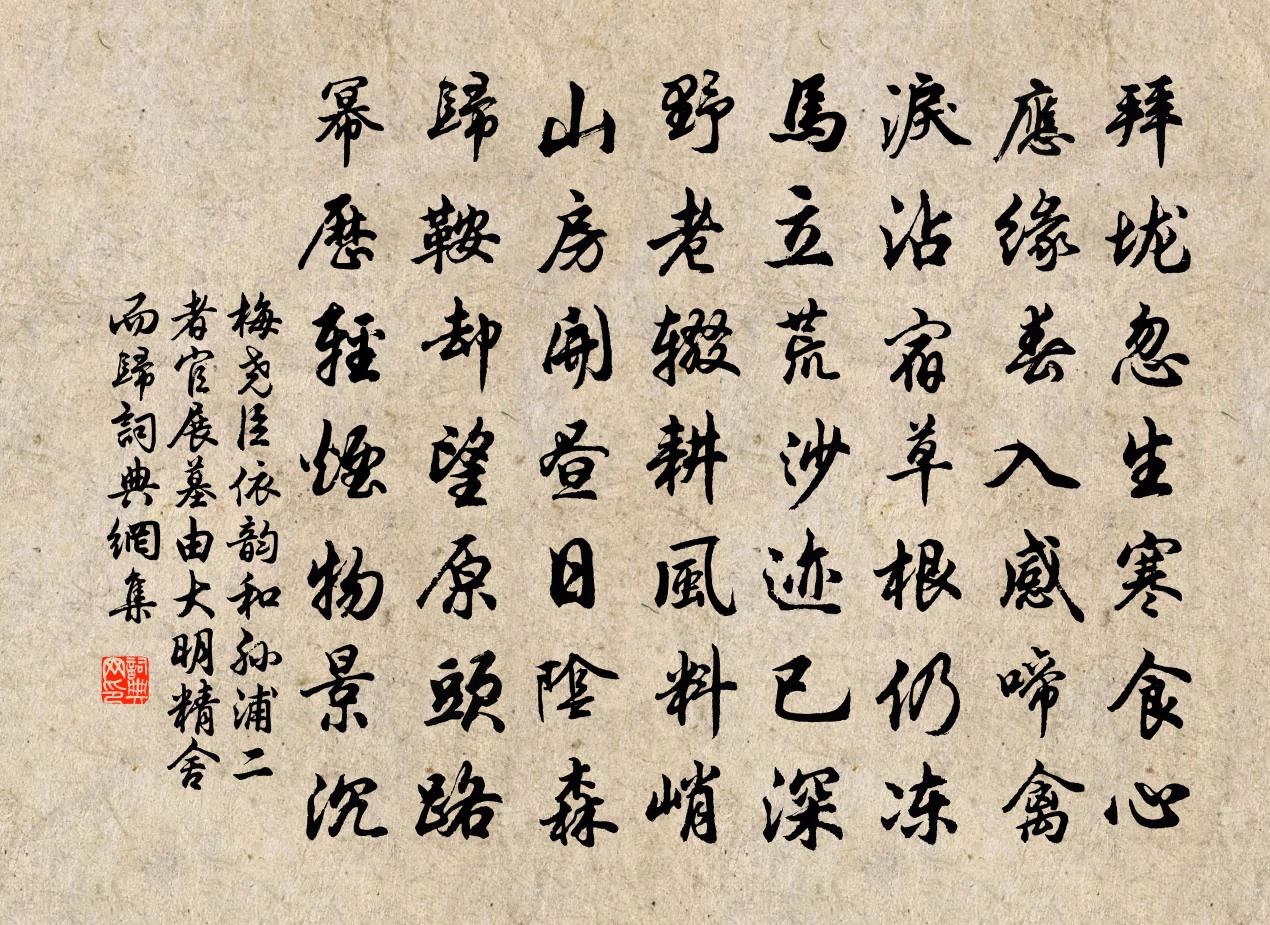 拜垅忽生寒食心
應缘春入感啼禽
淚沾宿草根仍冻
馬立荒沙迹已深
野老辍耕風料峭
山房開昼日陰森
歸鞍却望原頭路
冪歷輕煙物景沉
梅尧臣依韵和孙浦二
者官展墓由大明精舍
而歸詞典網集
詞典
网印